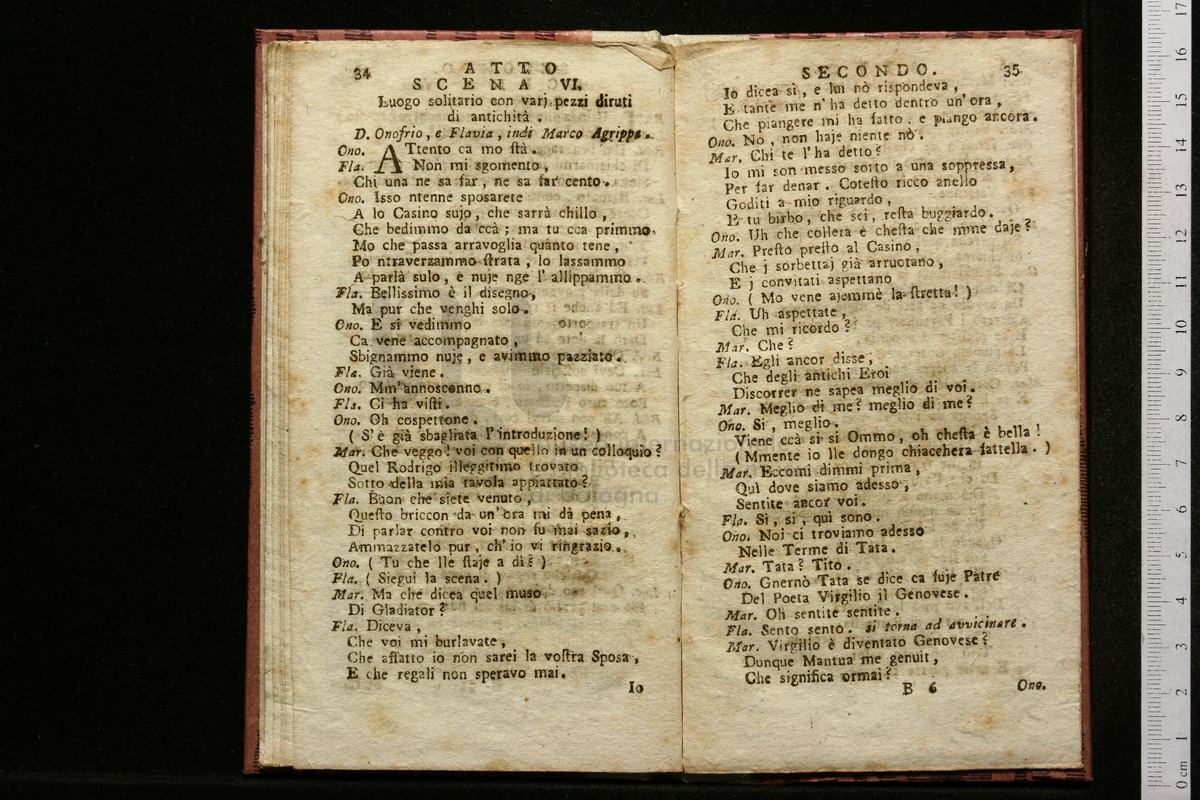 34
ATTO
SCENA VI.
Luogo solitario con varj pezzi diruti
di antichità.
D. Onofrio, e Flavia, indi Marco Agrippa.
Ono. ATtento ca mo ſtà.
Fla. Non mi sgomento,
Chi una ne sa far, ne sa far cento.
Ono. Isso ntenne sposarete
A lo Casino sujo, che sarrà chillo,
Che bedimmo da ccà; ma tu cca primmo,
Mo che passa arravoglia quanto tene,
Po ntraverzammo ſtrata, lo lassammo
A parlà sulo, e nuje nge l'allippammo.
Fla. Bellissimo è il disegno,
Ma pur che venghi solo.
Ono. E si vedimmo
Ca vene accompagnato,
Sbignammo nuje, e avimmo pazziato.
Fla. Già viene.
Ono. Mm'annosconno.
Fla. Ci ha viſti.
Ono. Oh cospettone.
(S'è già sbagliata l'introduzione!)
Mar. Che veggo! voi con quello in un colloquio?
Quel Rodrigo illeggitimo trovato
Sotto della mia tavola appiattato?
Fla. Buon che siete venuto,
Queſto briccon da un'ora mi dà pena,
Di parlar contro voi non fu mai sazio,
Ammazzatelo pur, ch'io vi ringrazio.
Ono. (Tu che lle ſtaje a dì?)
Fla. (Siegui la scena.)
Mar. Ma che dicea quel muso
Di Gladiator?
Fla. Diceva,
Che voi mi burlavate,
Che affatto io non sarei la voſtra Sposa,
E che regali non speravo mai.
Io
SECONDO. 35
Io dicea sì, e lui nò rispondeva,
E tante me n'ha detto dentro un'ora,
Che piangere mi ha fatto. e piango ancora.
Ono. No, non haje niente nò.
Mar. Chi te l'ha detto?
Io mi son messo sotto a una soppressa,
Per far denar. Coteſto ricco anello
Goditi a mio riguardo,
E tu birbo, che sei, reſta buggiardo.
Ono. Uh che collera è cheſta che mme daje?
Mar. Preſto preſto al Casino,
Che j sorbettaj già arruotano,
E j convitati aspettano
Ono. (Mo vene ajemmè la ſtretta!)
Fla. Uh aspettate,
Che mi ricordo?
Mar. Che?
Fla. Egli ancor disse,
Che degli antichi Eroi
Discorrer ne sapea meglio di voi.
Mar. Meglio di me? meglio di me?
Ono. Sì, meglio.
Viene ccà si si Ommo, oh cheſta è bella!
(Mmente io lle dongo chiacchera fattella.)
Mar. Eccomi dimmi prima,
Quì dove siamo adesso,
Sentite ancor voi.
Fla. Si, si, qui sono.
Ono. Noi ci troviamo adesso
Nelle Terme di Tata.
Mar. Tata? Tito.
Ono. Gnernò Tata se dice ca fuje Patre
Del Poeta Virgilio il Genovese.
Mar. Oh sentite sentite.
Fla. Sento sento. si torna ad avvicinare.
Mar. Virgilio è diventato Genovese?
Dunque Mantua me genuit,
Che significa ormai?
B 6 Ono.